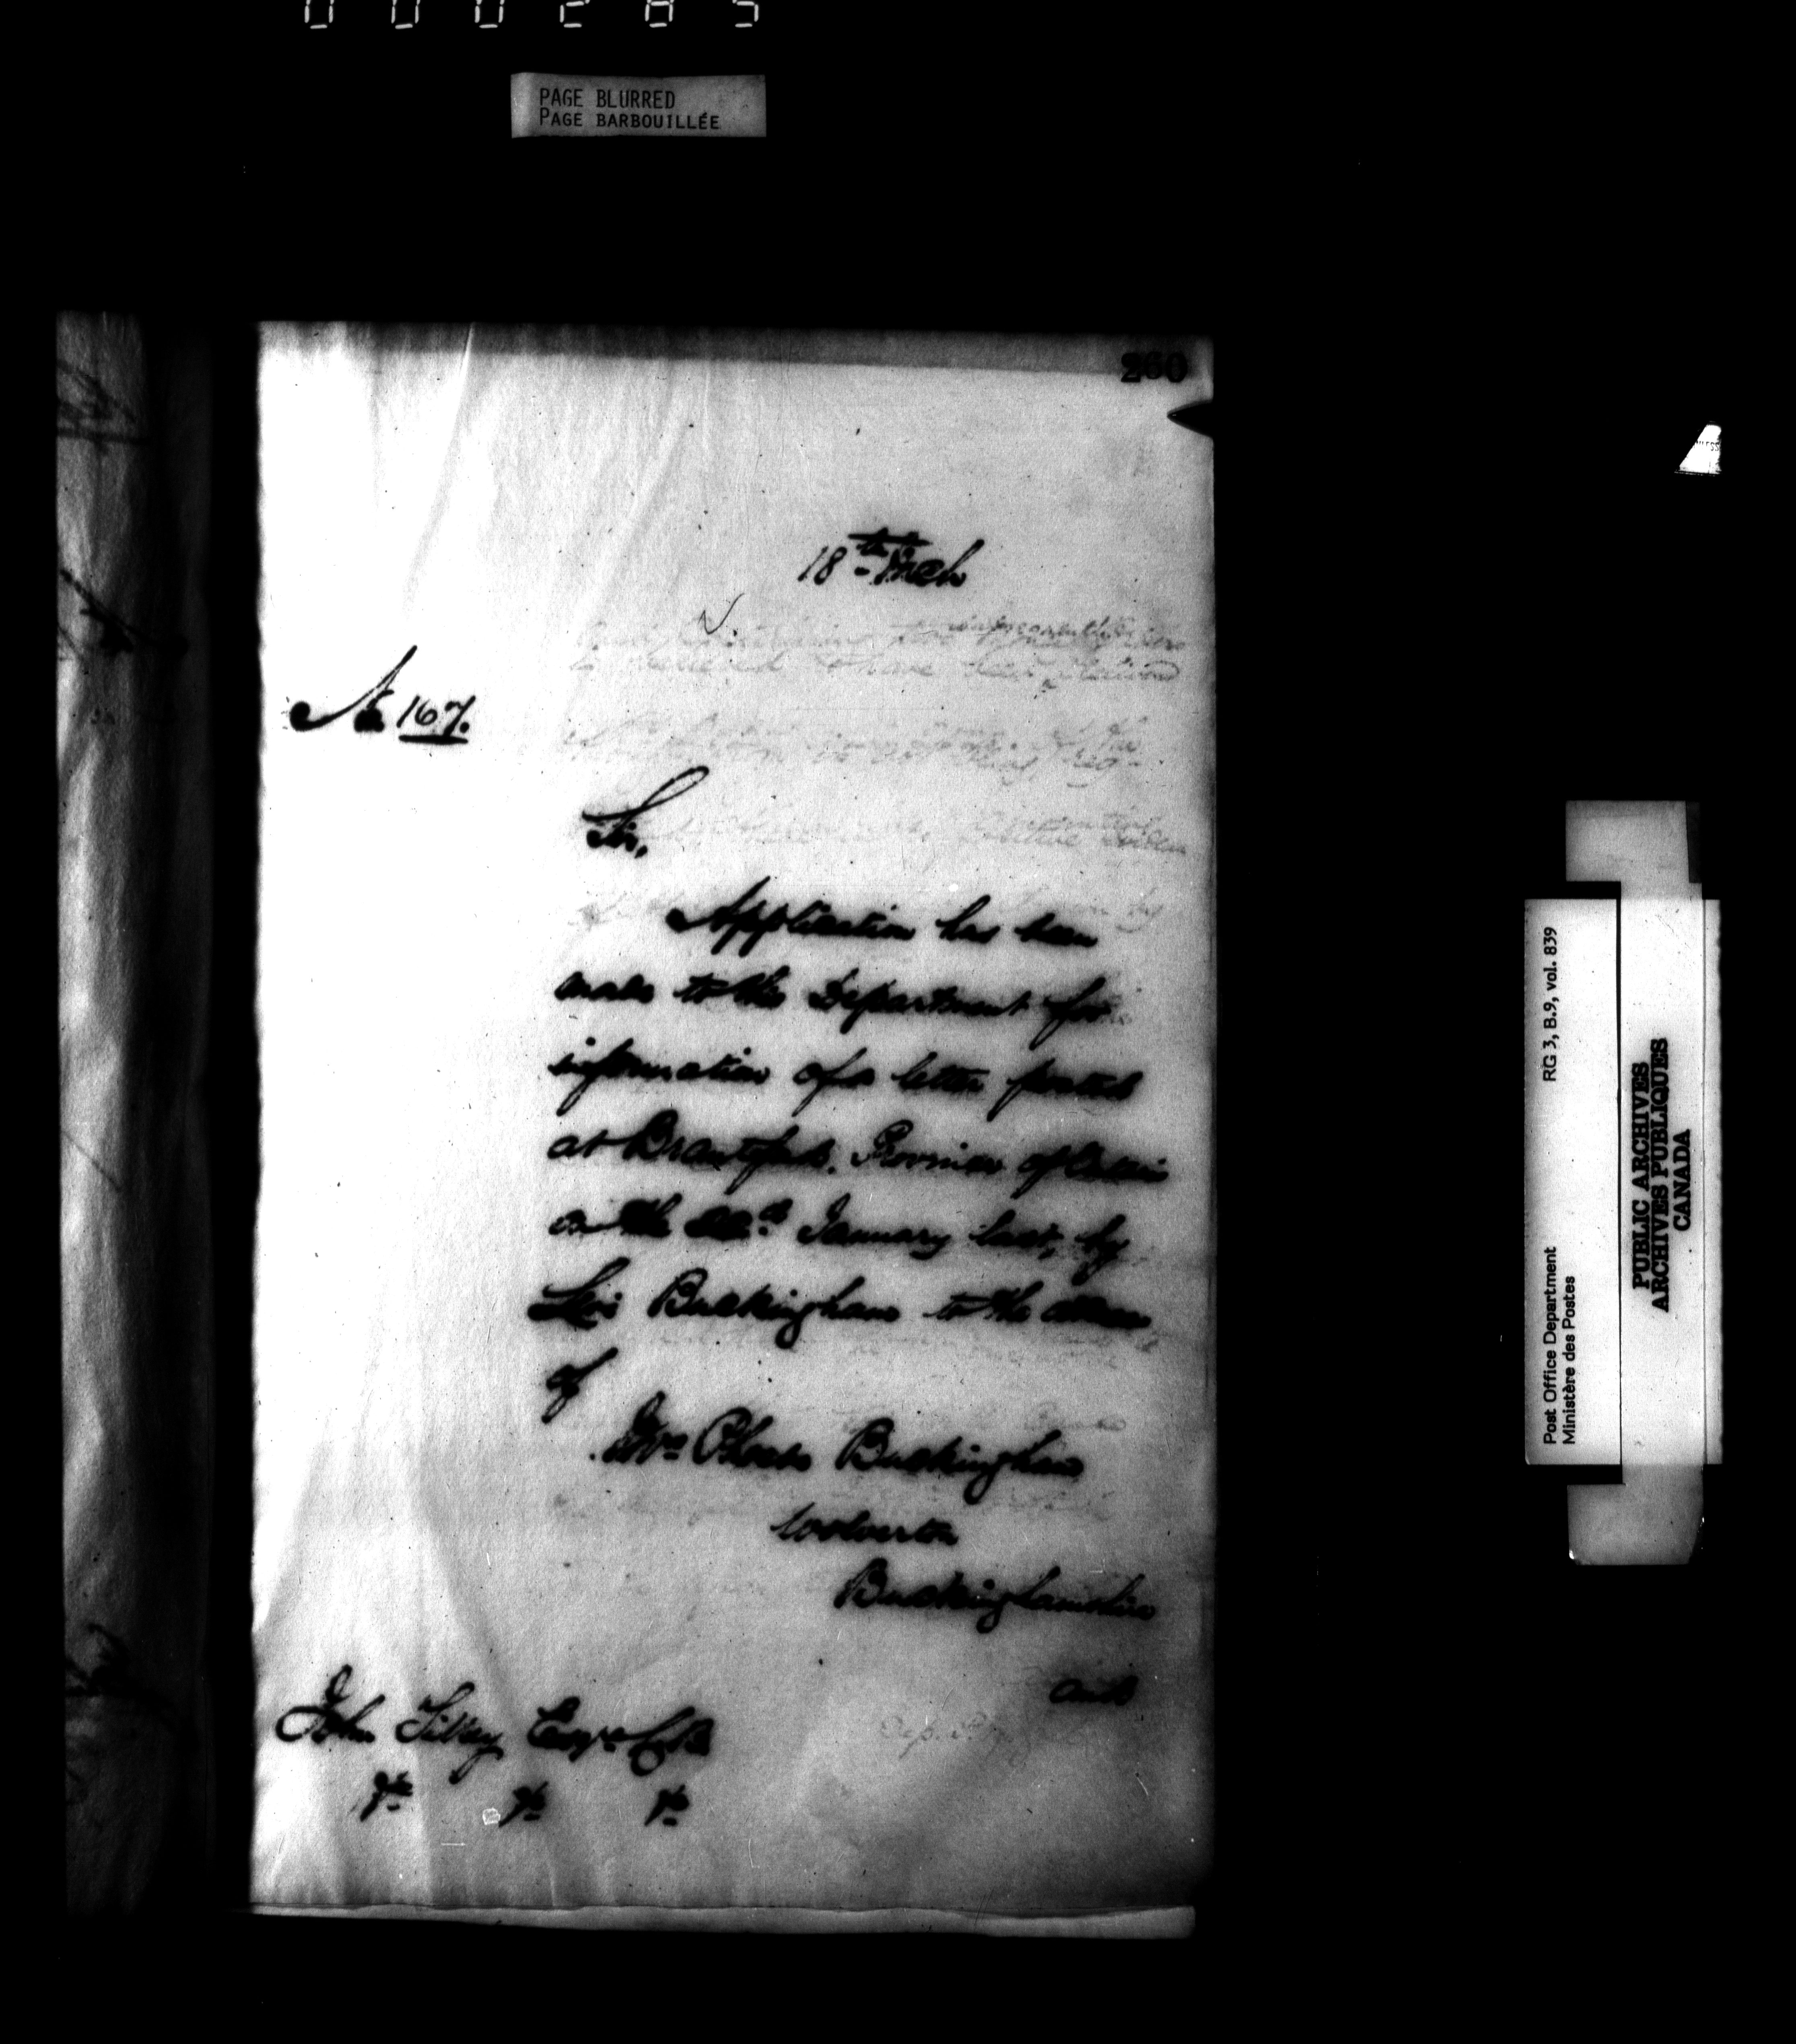 000285
PAGE BLURRED
PAGE BARBOUILLÉE
250
18th Mch
No 167.
Sir,
Application has been
made to this Department for
information of a letter posted
at Brantford, Province of Ontario
on the 22nd January last, by
Levi Buckingham to the address
of
Mrs Phoebe Buckingham
Wolverton
Buckinghamshire
and
John Tilley Esqre C.B.
&c &c &c
RG 3, B.9, vol. 839
Post Office Department
Ministère des Postes
PUBLIC ARCHIVES
ARCHIVES PUBLIQUES
CANADA